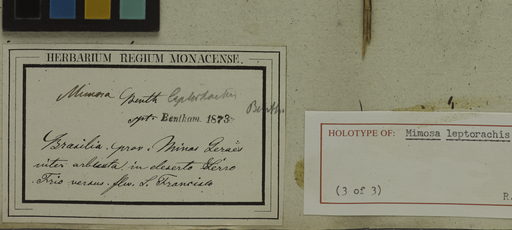 HERBARIUM REGIUM MONACENSE.
Mimosa Benth leptorachis Benth.
Bentham 1873
Brasilia. prov. Minas Geraës
inter arbusta in deserto Serro
Frio versus fluv. S. Francisco
HOLOTYPE OF: Mimosa leptorachis
(3 of 3)
R.